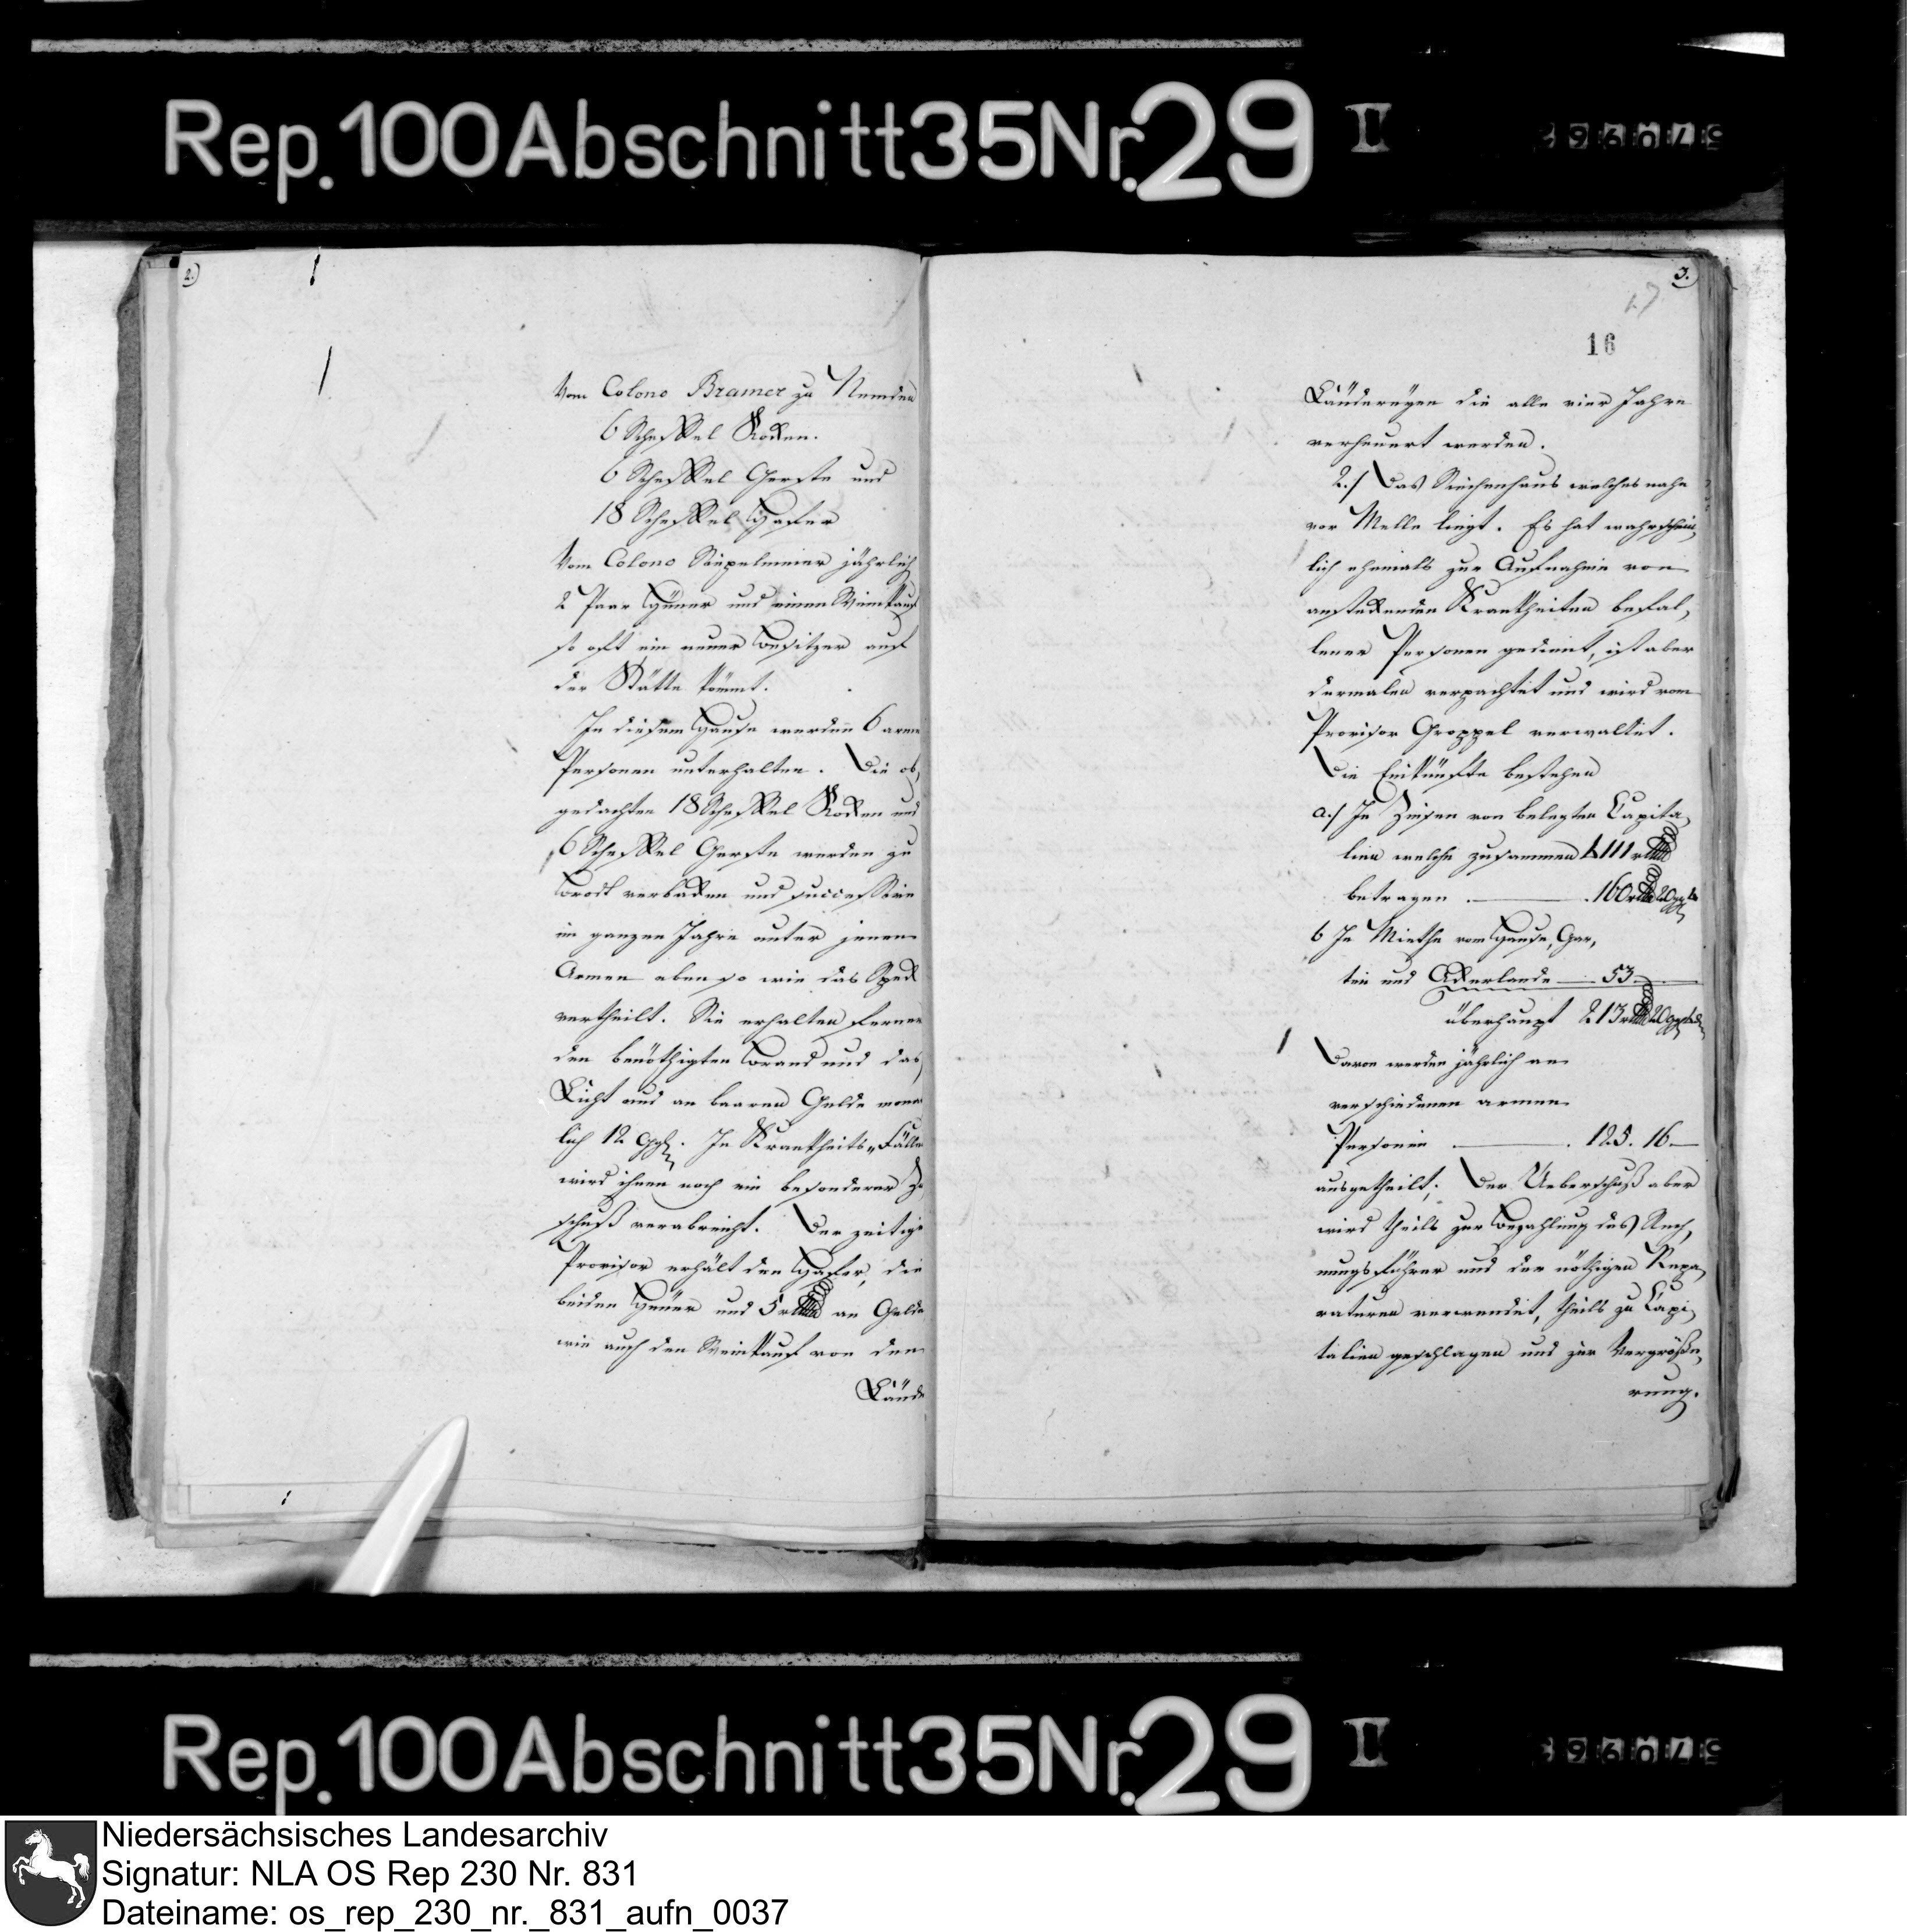 Rep. 100 Abschnitt 35 Nr. 29 II
2.)
Vom Colono Bramer zu Nemden
6 Scheffel Rocken.
6 Scheffel Gerste und
18 Scheffel Hafer
Vom Colono Siepelmeier jährlich
2 Paar Hüner und einen Weinkauf
so oft ein neuer Besitzer auf
der Stätte kömmt.
In diesem Hause werden 6 arme
Personen unterhalten. Die ob,
gedachten 18 Scheffel Rocken und
6 Scheffel Gerste werden zu
Brodt verbacken und successive
im ganzen Jahre unter jenen
Armen eben so wie das Speck
vertheilt. Sie erhalten ferner
den benöthigten Brand und das
Licht und an baaren Gelde monat
lich 12 ggl. In Krankheits-Fällen
wird ihnen noch ein besonderer Zu
schuß verabreicht. Der zeitige
Provisor erhält den Hafer, die
beiden Hüner und 5 rthlr an Gelde
wie auch den Weinkauf von den
Lände
3.
17
16
Ländereyen die alle vier Jahre
verheuert werden.
2./ Das Siechenhaus welches nahe
vor Melle liegt. Es hat wahrschein,
lich ehemals zur Aufnahme von
ansteckenden Krankheiten befal,
lener Personen gedient, ist aber
dermalen verpachtet und wird vom
Provisor Groppel verwaltet.
Die Einkünfte bestehen
a./ In Zinsen von belegten Capita,
lien welche zusammen 4111 rthlr
betragen . — . 160 rthlr 20 ggl
b In Miethe vom Hause, Gar,
ten und Ackerlande — 53 —
überhaupt 213 rthlr 20 ggl
Davon werden jährlich an
verschiedenen armen
Personen — . 125. 16 —
ausgetheilt; Der Ueberschuß aber
wird theils zur Bezahlung des Rech,
nungsführer und der nöthigen Repa,
raturen verwendet, theils zu Capi,
talien geschlagen und zur Vergröße,
rung.
Rep. 100 Abschnitt 35 Nr. 29 II
Niedersächsisches Landesarchiv
Signatur: NLA OS Rep 230 Nr. 831
Dateiname: os_rep_230_nr._831_aufn_0037